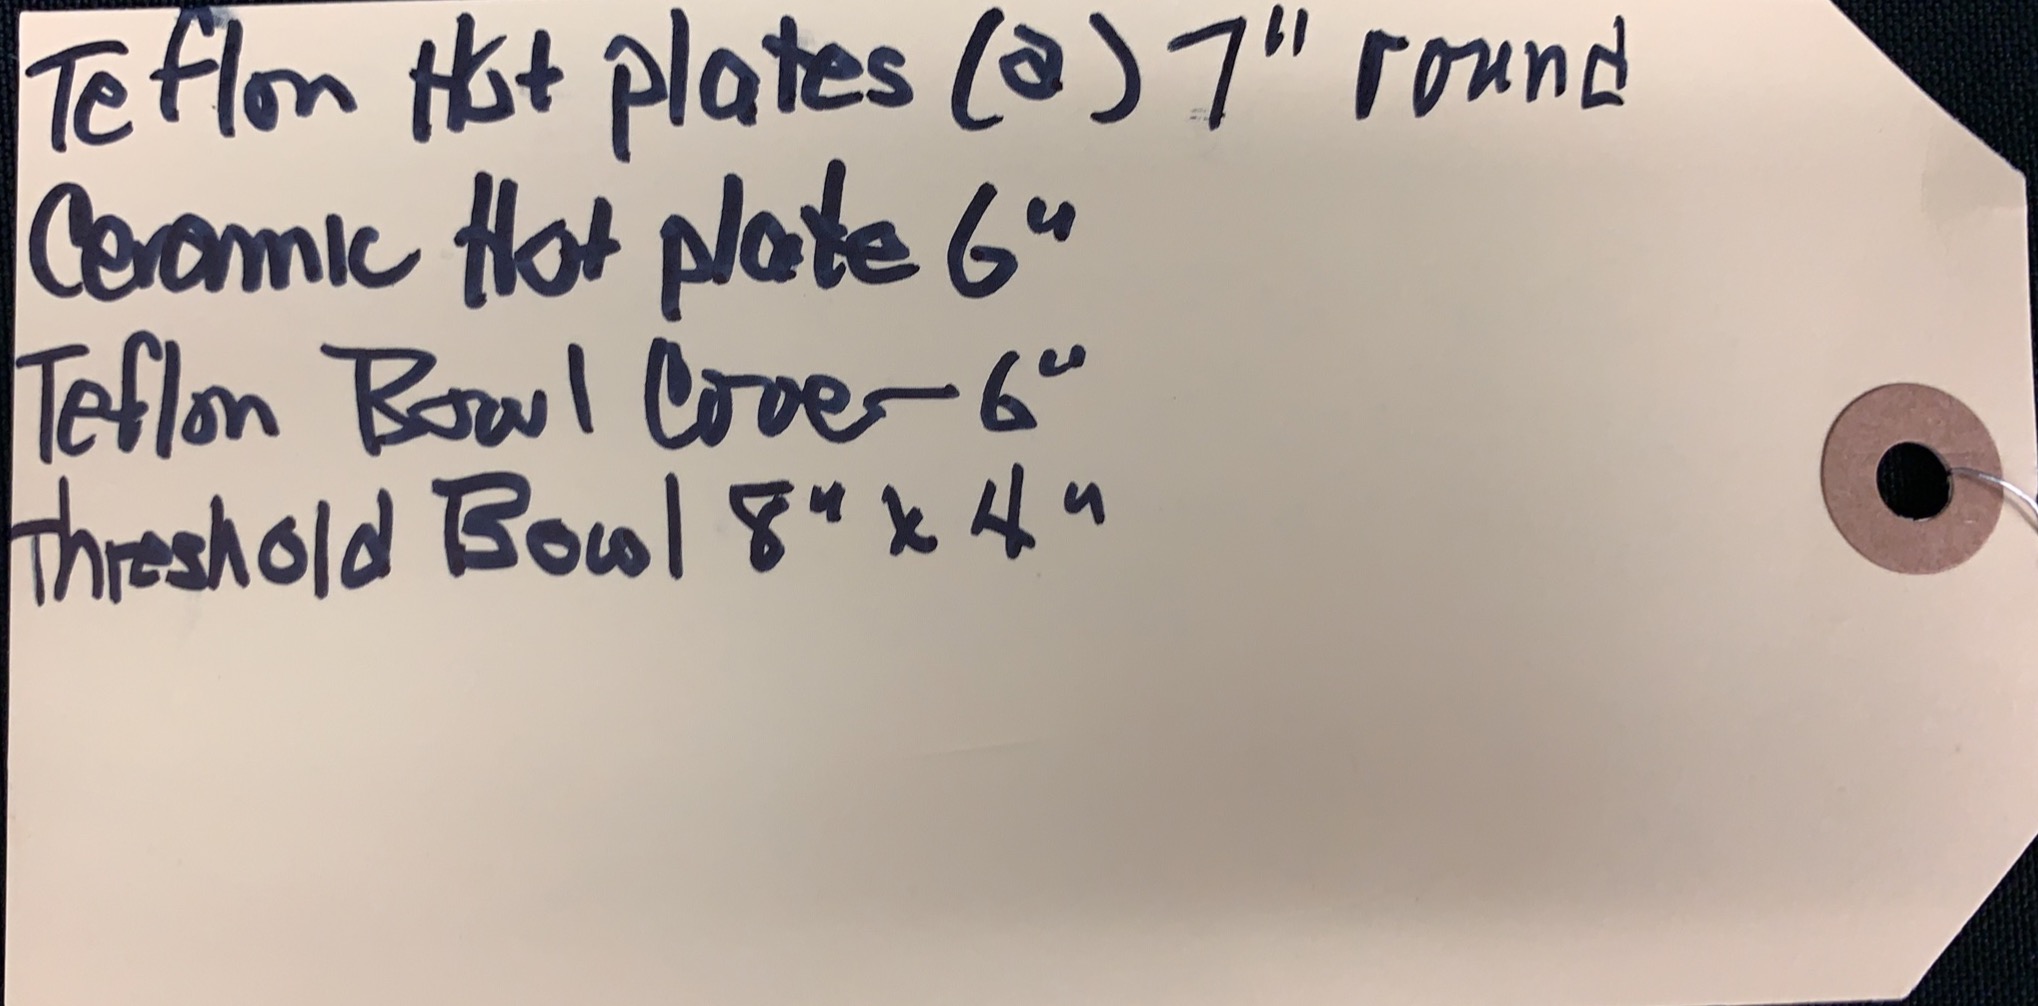 Teflon Hot plates (2) 7" round
Ceramic Hot plate 6"
Teflon Bowl Cover - 6"
Threshold Bowl 8" x 4"